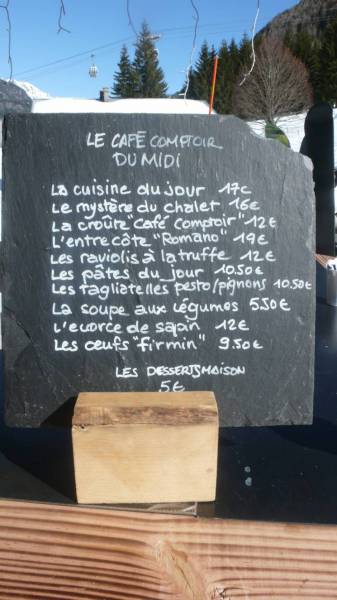 LE CAFÉ COMPTOIR
DU MIDI
La cuisine du jour 17€
Le mystère du chalet 16€
La croûte "Café Comptoir" 12€
L'entre côte "Romano" 19€
Les raviolis à la truffe 12€
Les pâtes du jour 10.50€
Les tagliatelles pesto/pignons 10.50€
La soupe aux légumes 5.50€
L'ecorce de sapin 12€
Les œufs "firmin" 9.50€
LES DESSERTS MAISON
5€